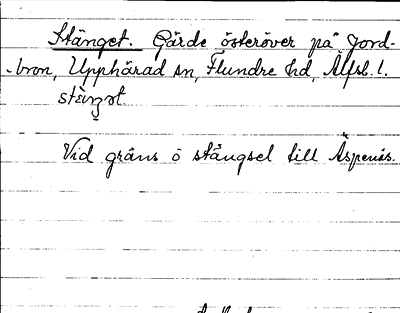 Stänget. Gärde österöver på Jord-
-bron, Upphärad sn, Flundre hd, Älfsb. l.
Vid gräns o stängsel till Äspenäs.